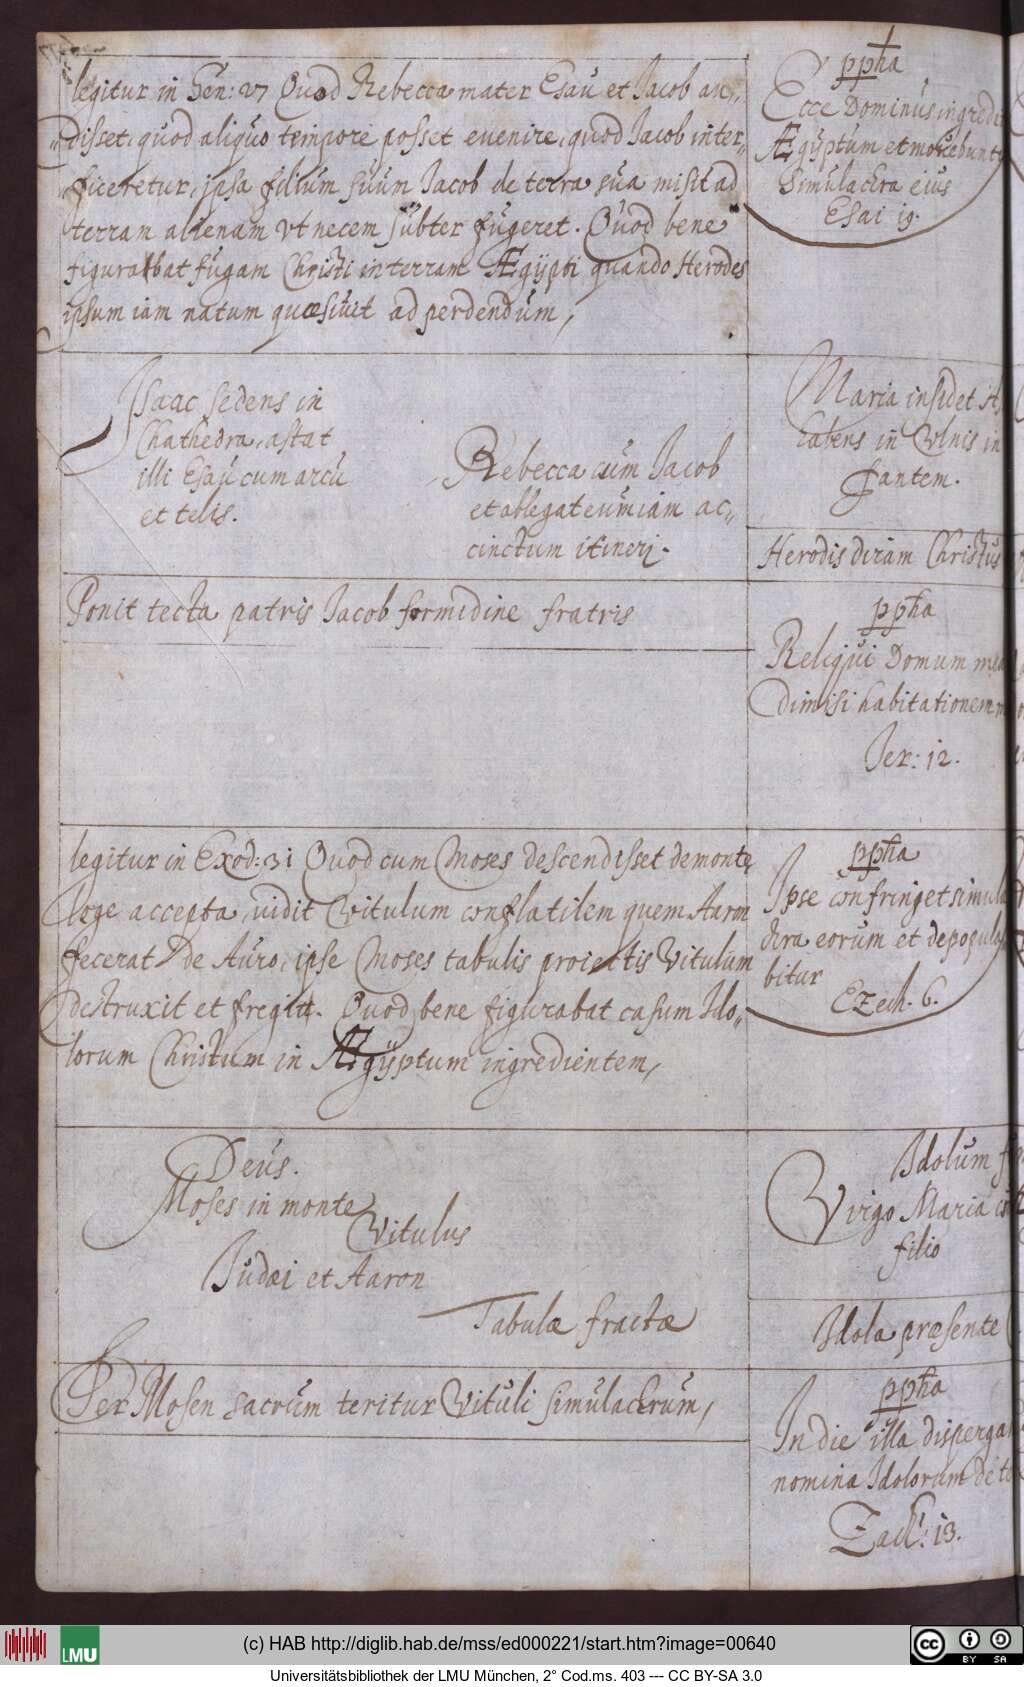 legitur in Gen: 27 Quod Rebecca mater Esau et Jacob au„
disset, quod aliquo tempore posset euenire, quod Jacob inter„
ficeretur, ipsa filium suum Jacob de terra sua misit ad
terram alienam vt necem subter fugeret. Quod bene
figurabat fugam Christi in terram Ægÿpti quando Herodes
ipsum iam natum quæsiuit ad perdendum,
ppħa
Ecce Dominus ingredi
Ægÿptum et mouebunt
Simulachra eius
Esai 19.
Isaac sedens in
Chathedra, astat
illi Esau cum arcu
et telis.
Rebecca cum Jacob
et ablegat eum iam ac„
cinctum itineri.
Maria insidet
habens in vlnis in
fantem.
Herodis diram Christus
Ponit tecta patris Jacob formidine fratris
ppħa
Reliqui Domum mea
dimisi habitationem m
Jer: 12.
legitur in Exod: 31 Quod cum Moses descendisset de monte,
lege accepta, vidit vitulum conflatilem quem Aaron
fecerat de Auro, ipse Moses tabulis proiectis Vitulum
destruxit et fregit. Quod bene figurabat casum Ido„
lorum Christum in Ægÿptum ingredientem,
ppħa
Ipse confringet simula
chra eorum et depopula
bitur
Ezech. 6.
Deus.
Moses in monte
Vitulus
Judæi et Aaron
Tabulæ fractæ
Idolum
Virgo Maria
filio
Idola præsente
Per Mosen sacrum teritur Vituli simulachrum,
ppħa
In die illa disperga
nomina Idolorum de te
Zach: 13.
LMU
(c) HAB http://diglib.hab.de/mss/ed000221/start.htm?image=00640
cc BY SA
Universitätsbibliothek der LMU München, 2° Cod.ms. 403 --- CC BY-SA 3.0